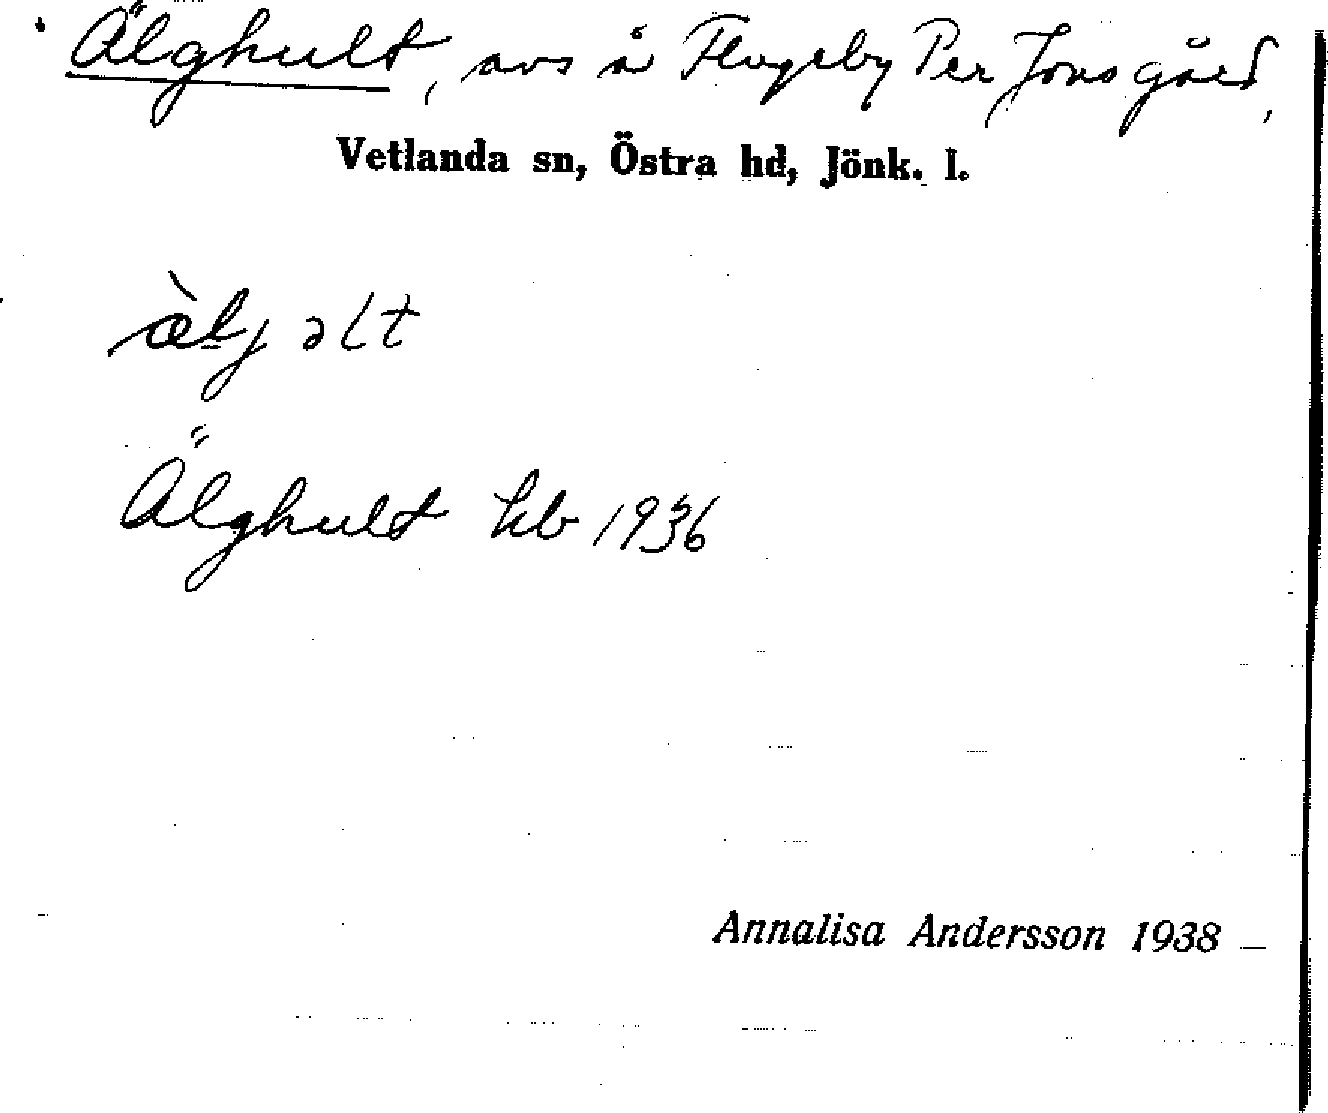 Älghult, avs å Flugeby Per Jons gård,
Vetlanda sn, Östra hd, Jönk. l.
æ̀lj əlt
Älghult kb 1936
Annalisa Andersson 1938